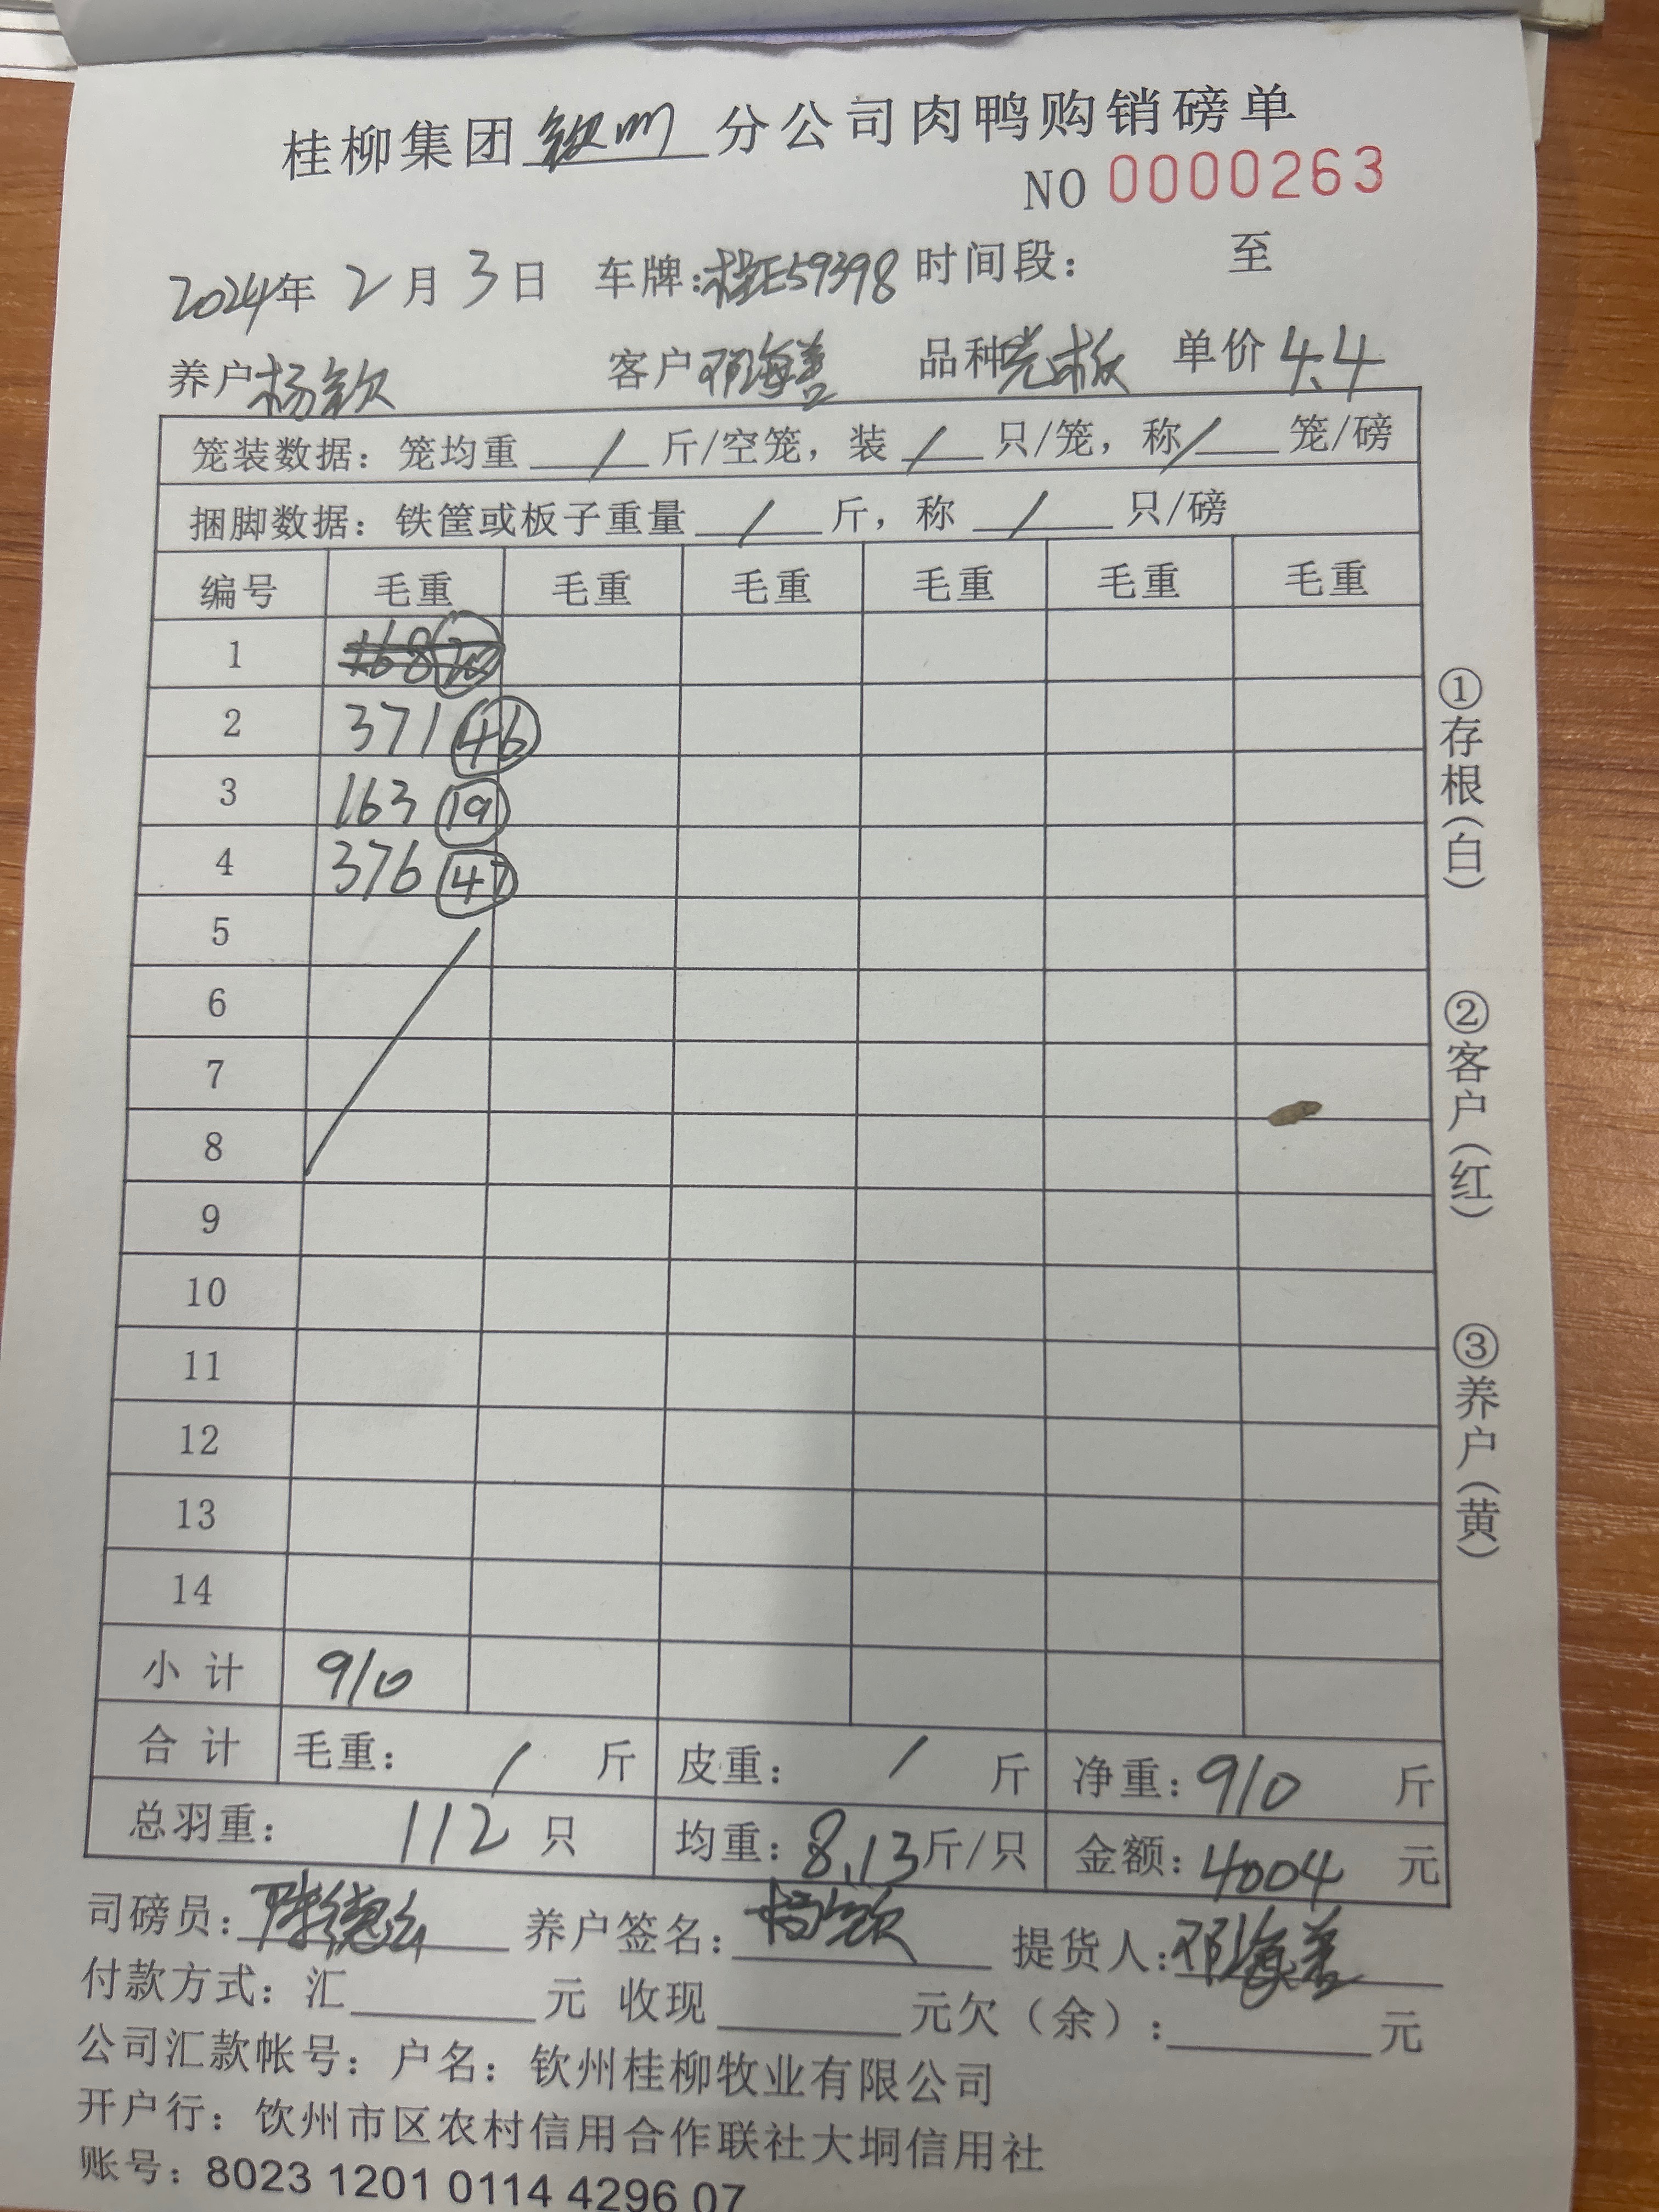 桂柳集团钦州分公司肉鸭购销磅单
NO 0000263
2024年 2月 3日 车牌:桂E59398 时间段: 至
养户杨钦 客户邓海善 品种光板 单价4.4
笼装数据: 笼均重 / 斤/空笼, 装 / 只/笼, 称 / 笼/磅
捆脚数据: 铁筐或板子重量 / 斤, 称 / 只/磅
编号 毛重 毛重 毛重 毛重 毛重 毛重
1 168 20
2 371 46
3 163 19
4 376 47
5
6
7
8
9
10
11
12
13
14
小计 910
合计 毛重: / 斤 皮重: / 斤 净重: 910 斤
总羽重: 112 只 均重: 8.13斤/只 金额: 4004 元
司磅员: 养户签名: 杨钦 提货人: 邓海善
付款方式: 汇 元 收现 元欠(余): 元
公司汇款帐号: 户名: 钦州桂柳牧业有限公司
开户行: 钦州市区农村信用合作联社大垌信用社
账号: 8023 1201 0114 4296 07
①存根(白)
②客户(红)
③养户(黄)